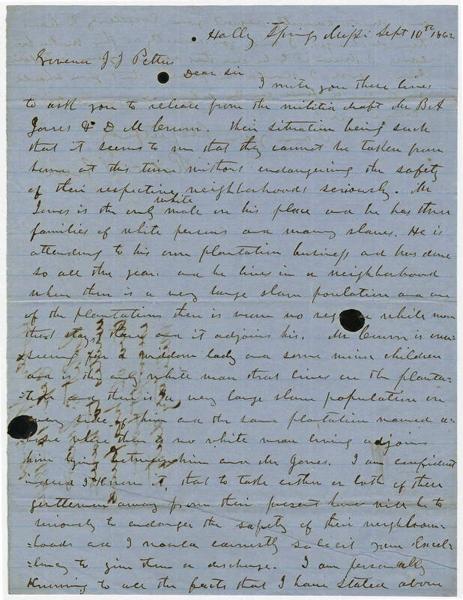 Holly Springs Missi Sept 10th 1862
Governor J J Pettus
Dear Sir
I write you these lines
to ask you to release from the militia draft Mr B A
Jones & D M . Their situation being such
that it seems to me that they cannot be taken from
home at this time without endangering the safety
of their respective neighborhoods seriously. Mr
Jones is the only white male on his place and he has three
families of white persons and many slaves. He is
attending to his own plantation business and has done
so all the year. and he lives in a neighborhood
where there is a very large slave poulation and one
of the plantations there is no white man
that stays there and it adjoins his. Mr is over-
-seeing for a widdow lady and some minor children
and is the only white man that lives on the planta-
-tion and there is a very large slave population on
side of him and the same plantation named a-
where there is no white man living adjoins
him lying between him and Mr Jones. I am confident
, that to take either or both of these
gentlemen away from their present homes will be to
seriously to endanger the safety of their neighbour-
-hoods and I would earnestly solicit your Excel-
-lency to give them a discharge. I am personally
Knowing to all the facts that I have stated above